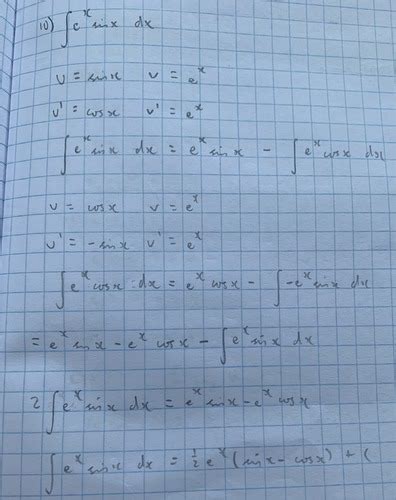 10) ∫ e^x sinx dx
u = sinx v = e^x
u' = cosx v' = e^x
∫ e^x sinx dx = e^x sinx - ∫ e^x cosx dx
u = cosx v = e^x
u' = -sinx v' = e^x
∫ e^x cosx dx = e^x cosx - ∫ -e^x sinx dx
= e^x sinx - e^x cosx - ∫ e^x sinx dx
2 ∫ e^x sinx dx = e^x sinx - e^x cosx
∫ e^x sinx dx = 1/2 e^x (sinx - cosx) + (